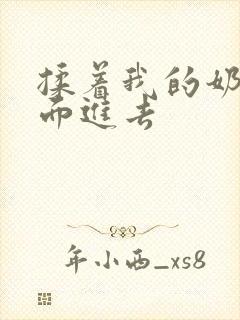 揉着我的奶
而進去
年小西_xs8